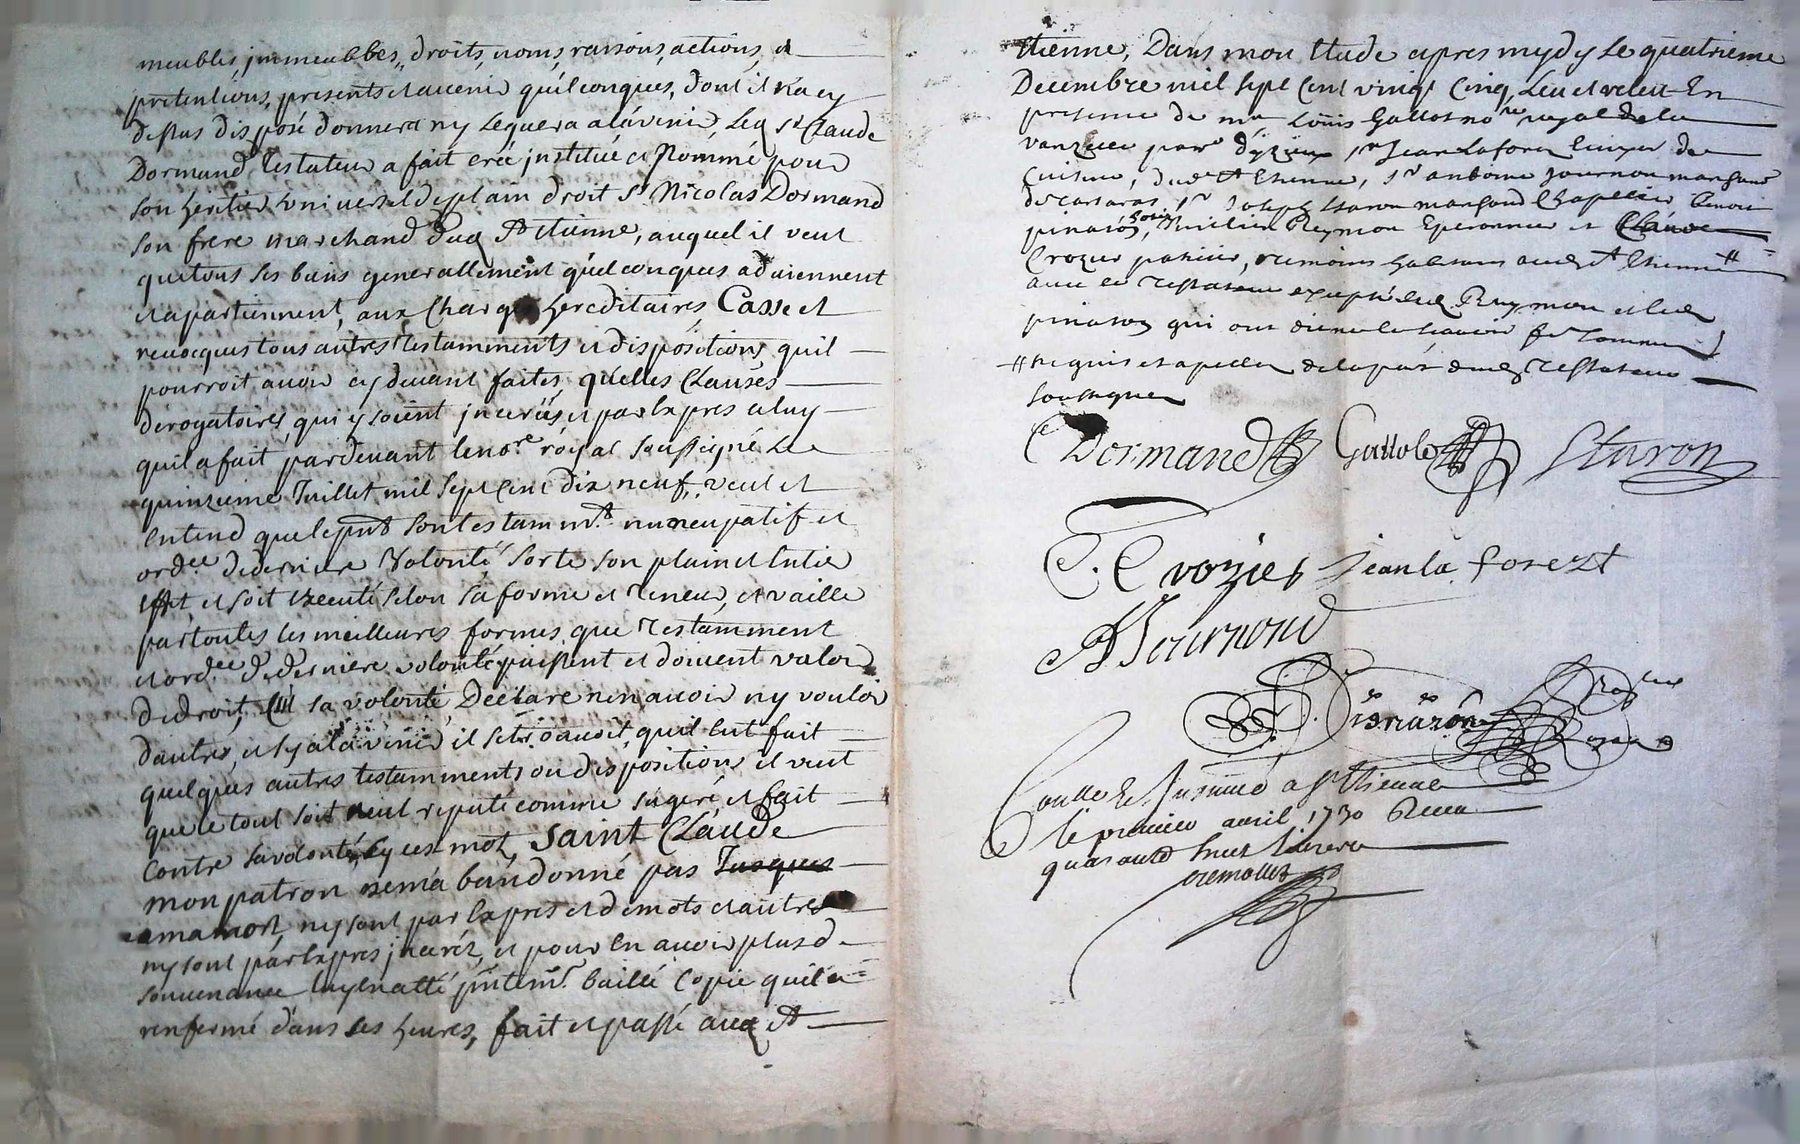 meubles, jmmeubles, droits, noms, raisons, actions, et
prétentions, presents et avenir quélconques, dont il n'a cy
dessus disposé donnera ny leguera a l'avenir, Led. Sr Claude
Dormand testateur a fait créé jnstitué et nommé pour
son heritier universel de plain droit Sr Nicolas Dormand
son frere marchand dud. St Etienne, auquel il veut
que tous ses biens generallement quélconques adviennent
et apartiennent, aux Charges hereditaires, Casse et
revocques tous autres testamments et dispositions quil
pourroit avoir cy devant faites, quelles Clauses
derogatoires qui y soient jncerées, et par Expres celuy
quil a fait pardevant le nore royal soussigné Le
quinzieme Juillet mil sept cent dix neuf, veut et
Entend que le pnt son testammt nuncupatif et
ordce de derniere volonté, sorte son plain et Entier
effet, et soit Executé selon sa forme et Teneur, et vaille
par toutes les meilleures formes que Testamment
et ordce de derniere volonté puissent et doivent valoir
de droit, sa volonté Declare n'en avoir ny vouloir
dautres, et sy a l'avenir il se trouvoit, quil Eut fait
quelques autres testamments ou dispositions il veut
que le tout soit nul reputé comme sugeré et fait
Contre sa volonté, sy ces mot, Saint Claude
mon patron ne m'a bandonné pas Jusques
a ma mort, ny sont par Expres et de mots et autres
ny sont par Expres jncerés, et pour En avoir plus de
souvenance luy En a été pntemt baillé Copie quil a
renfermé dans ses heures, fait et passé aud. St
Etienne, Dans mon Etude apres mydy Le quatrieme
Decembre mil sept Cent vingt Cinq, Leu et releu En
presence de me Louis Gallot nore royal de la
parre Sr Jean Laforez
Cuisine, dud. St Etienne, Sr anthoine Journou marchand
Sr Joseph Staron marchand Chapellier Benoit
pinaton, Reymon Eperonnier et Claude
Crozier patissier, temoins habitans aud. St Etienne #
avec le Testateur excepté led. Reymon et led.
pinaton qui ont
# requis et apellez de la part dud. Testateur
soussignez
C Dormand Gallot Staron
C. Crozier Jean la forezt
A Journoud
Pignaton
Royal
Conlle & Insinué a St Etienne
le premier avril 1730 Receu
quarante livres